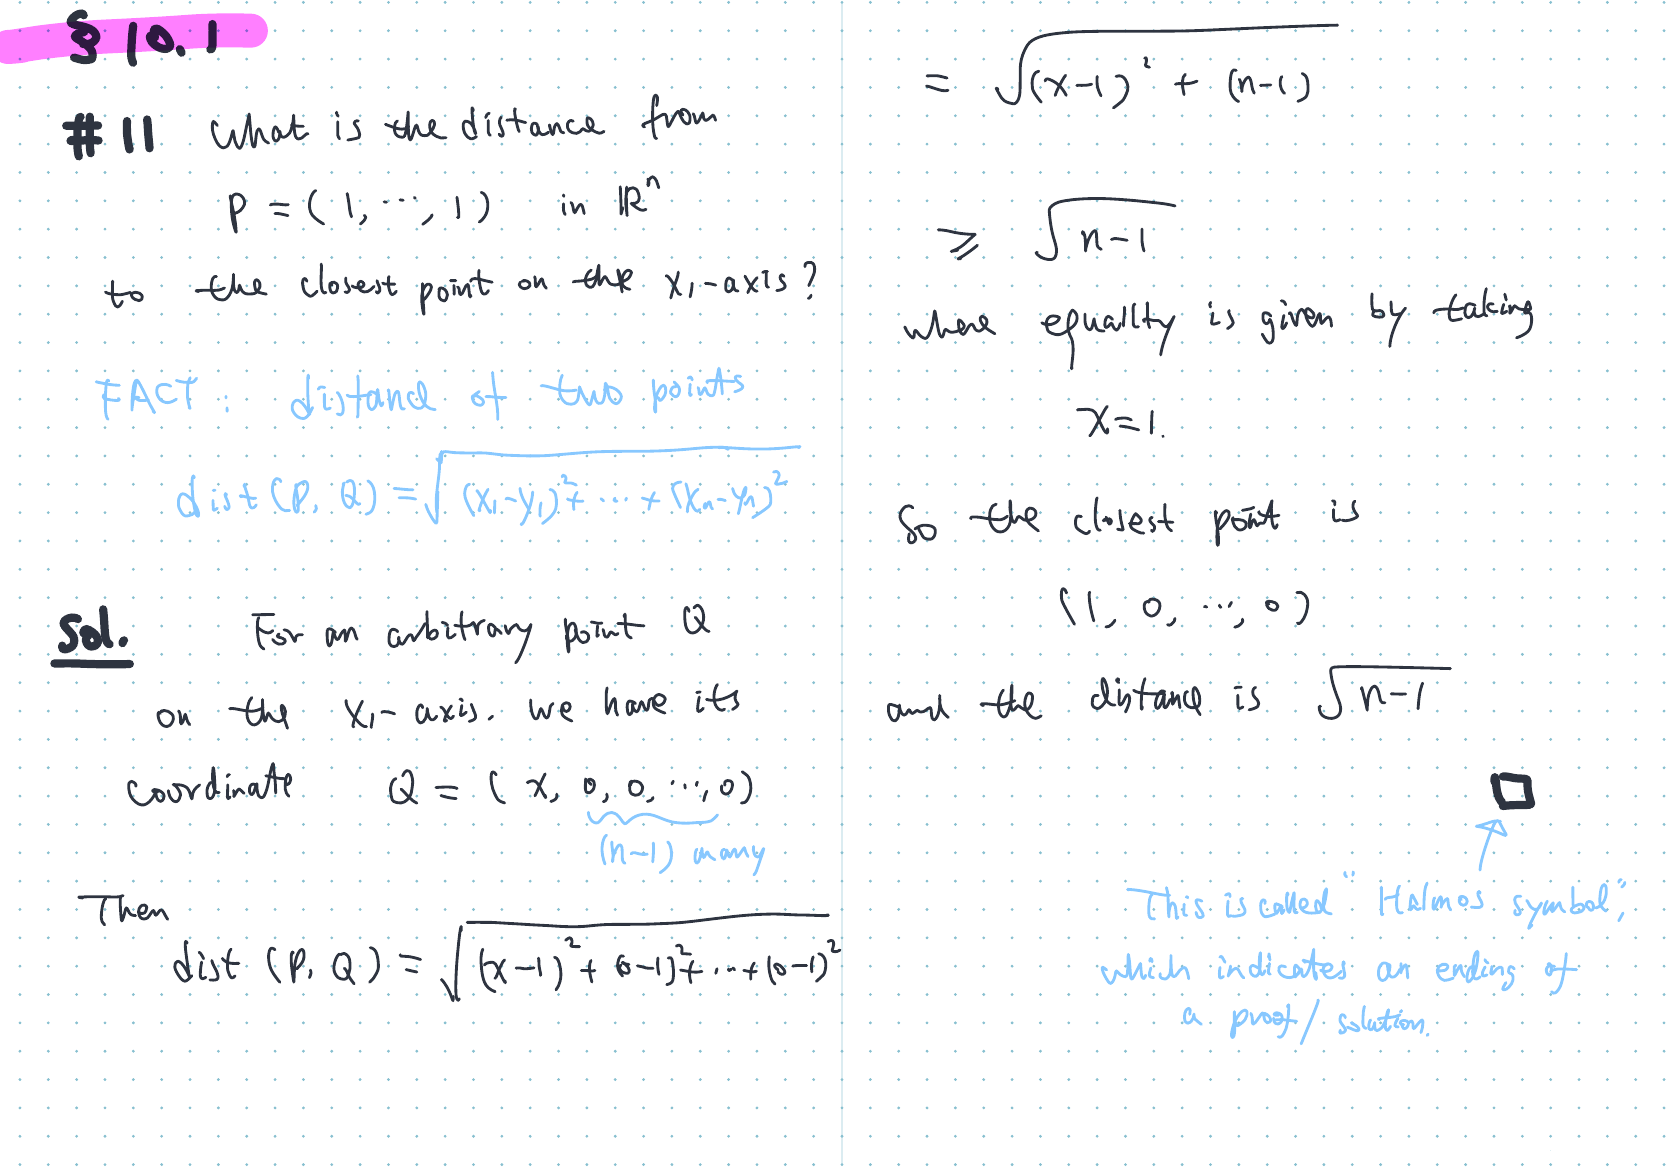 § 10.1
#11 What is the distance from
P = (1, ..., 1) in ℝⁿ
to the closest point on the x₁-axis?
FACT: distance of two points
dist(P, Q) = √((x₁-y₁)² + ... + (xₙ-yₙ)²)
Sol. For an arbitrary point Q
on the x₁-axis. we have its
coordinate Q = (x, 0, 0, ..., 0)
(n-1) many
Then
dist (P, Q) = √((x-1)² + (0-1)² + ... + (0-1)²)
= √((x-1)² + (n-1))
≥ √(n-1)
where equality is given by taking
x=1.
So the closest point is
(1, 0, ..., 0)
and the distance is √(n-1)
□
This is called "Halmos symbol",
which indicates an ending of
a proof/solution.